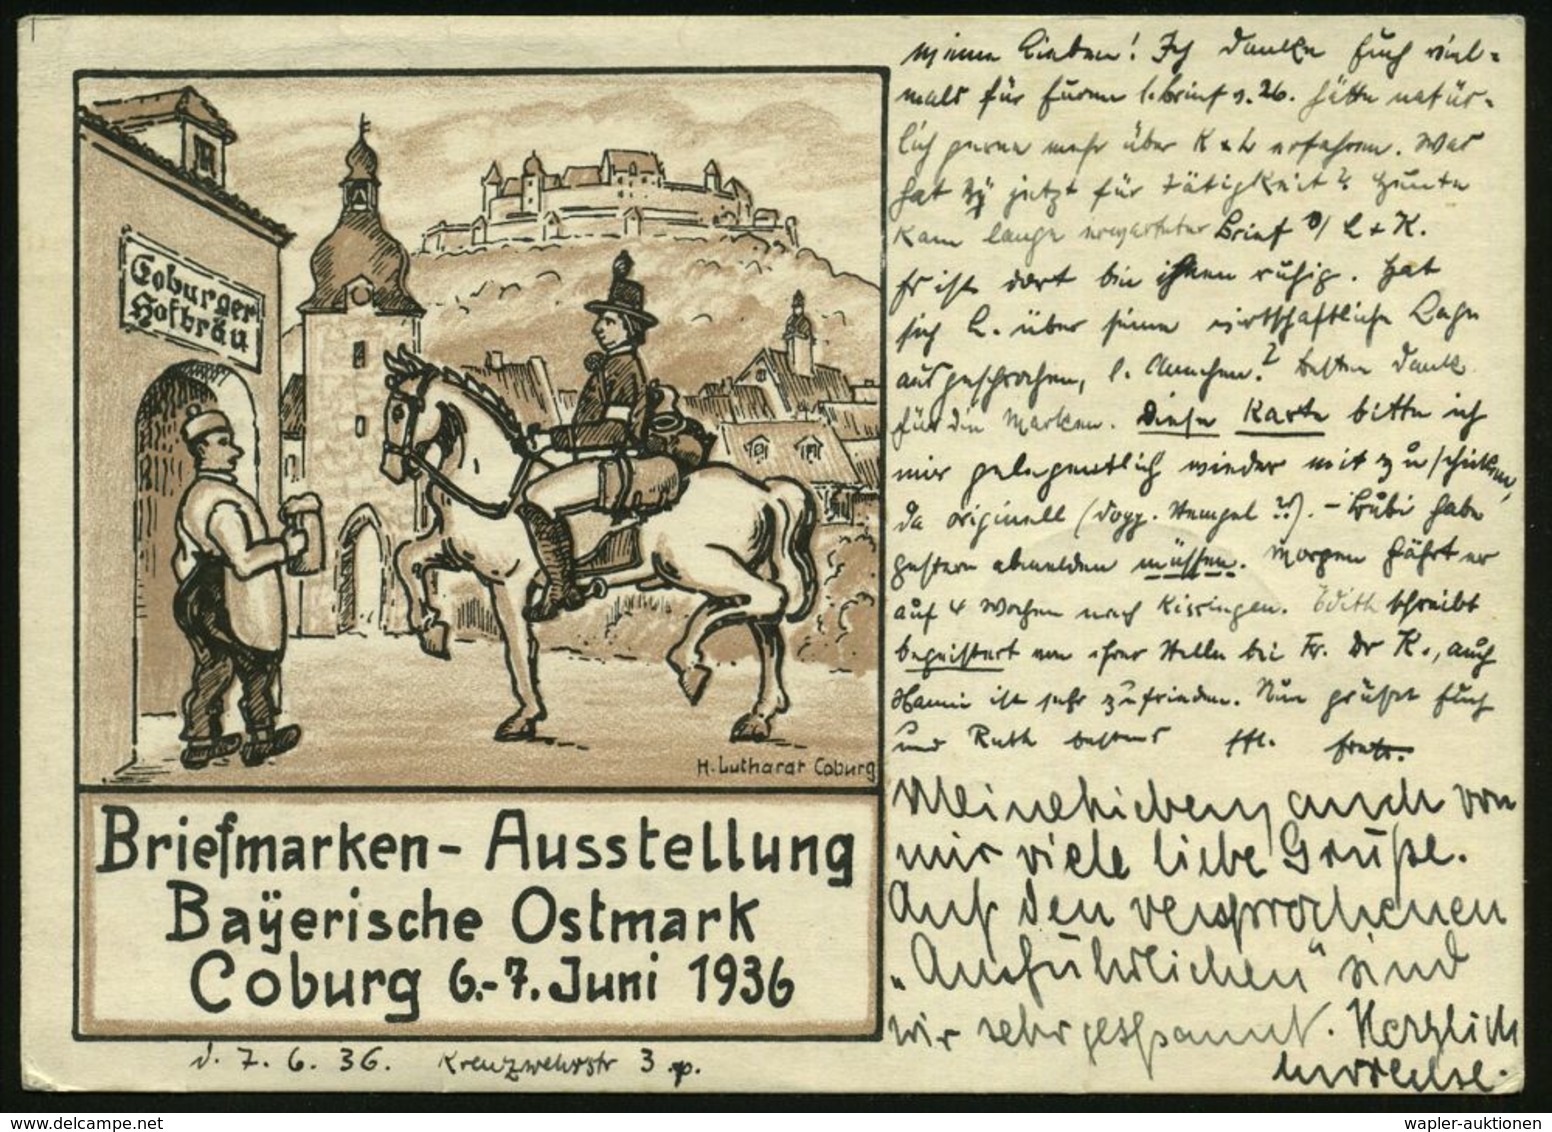 Coburger
Hofbräu
H. Lutharat Coburg
Briefmarken-Ausstellung
Baÿerische Ostmark
Coburg 6.-7. Juni 1936
d. 7. 6. 36. Kreuzwehrstr 3 p.
Meine Lieben! Ich danke Euch viel=
mals für Euren l. Brief v. 26. hätte natür-
lich gerne mehr über K + L erfahren. Was
hat jetzt für Tätigkeit? Heute
kam lange erwarteter Brief v/ L + K.
Er ist dort bin ruhig. Hat
sich L. über seine wirtschaftliche Lage
ausgesprochen, l. Annchen? Besten Dank
für die Marken. Diese Karte bitte ich
mir gelegentlich wieder mit zu schicken,
da originell (dopp. Stempel ?!). - Bubi habe
gestern abmelden müssen. Morgen fährt er
auf 4 Wochen nach Kissingen. Edith schreibt
begeistert von ihrer Stelle bei Fr. Dr K., auch
Hanni ist sehr zufrieden. Nun grüßt Euch
und Ruth bestens
Meine Lieben, auch von
mir viele liebe Grüße.
Auf den versprochenen
„Ausführlichen“ sind
wir sehr gespannt. Herzlich
wapler-auktionen
© www.delcampe.net